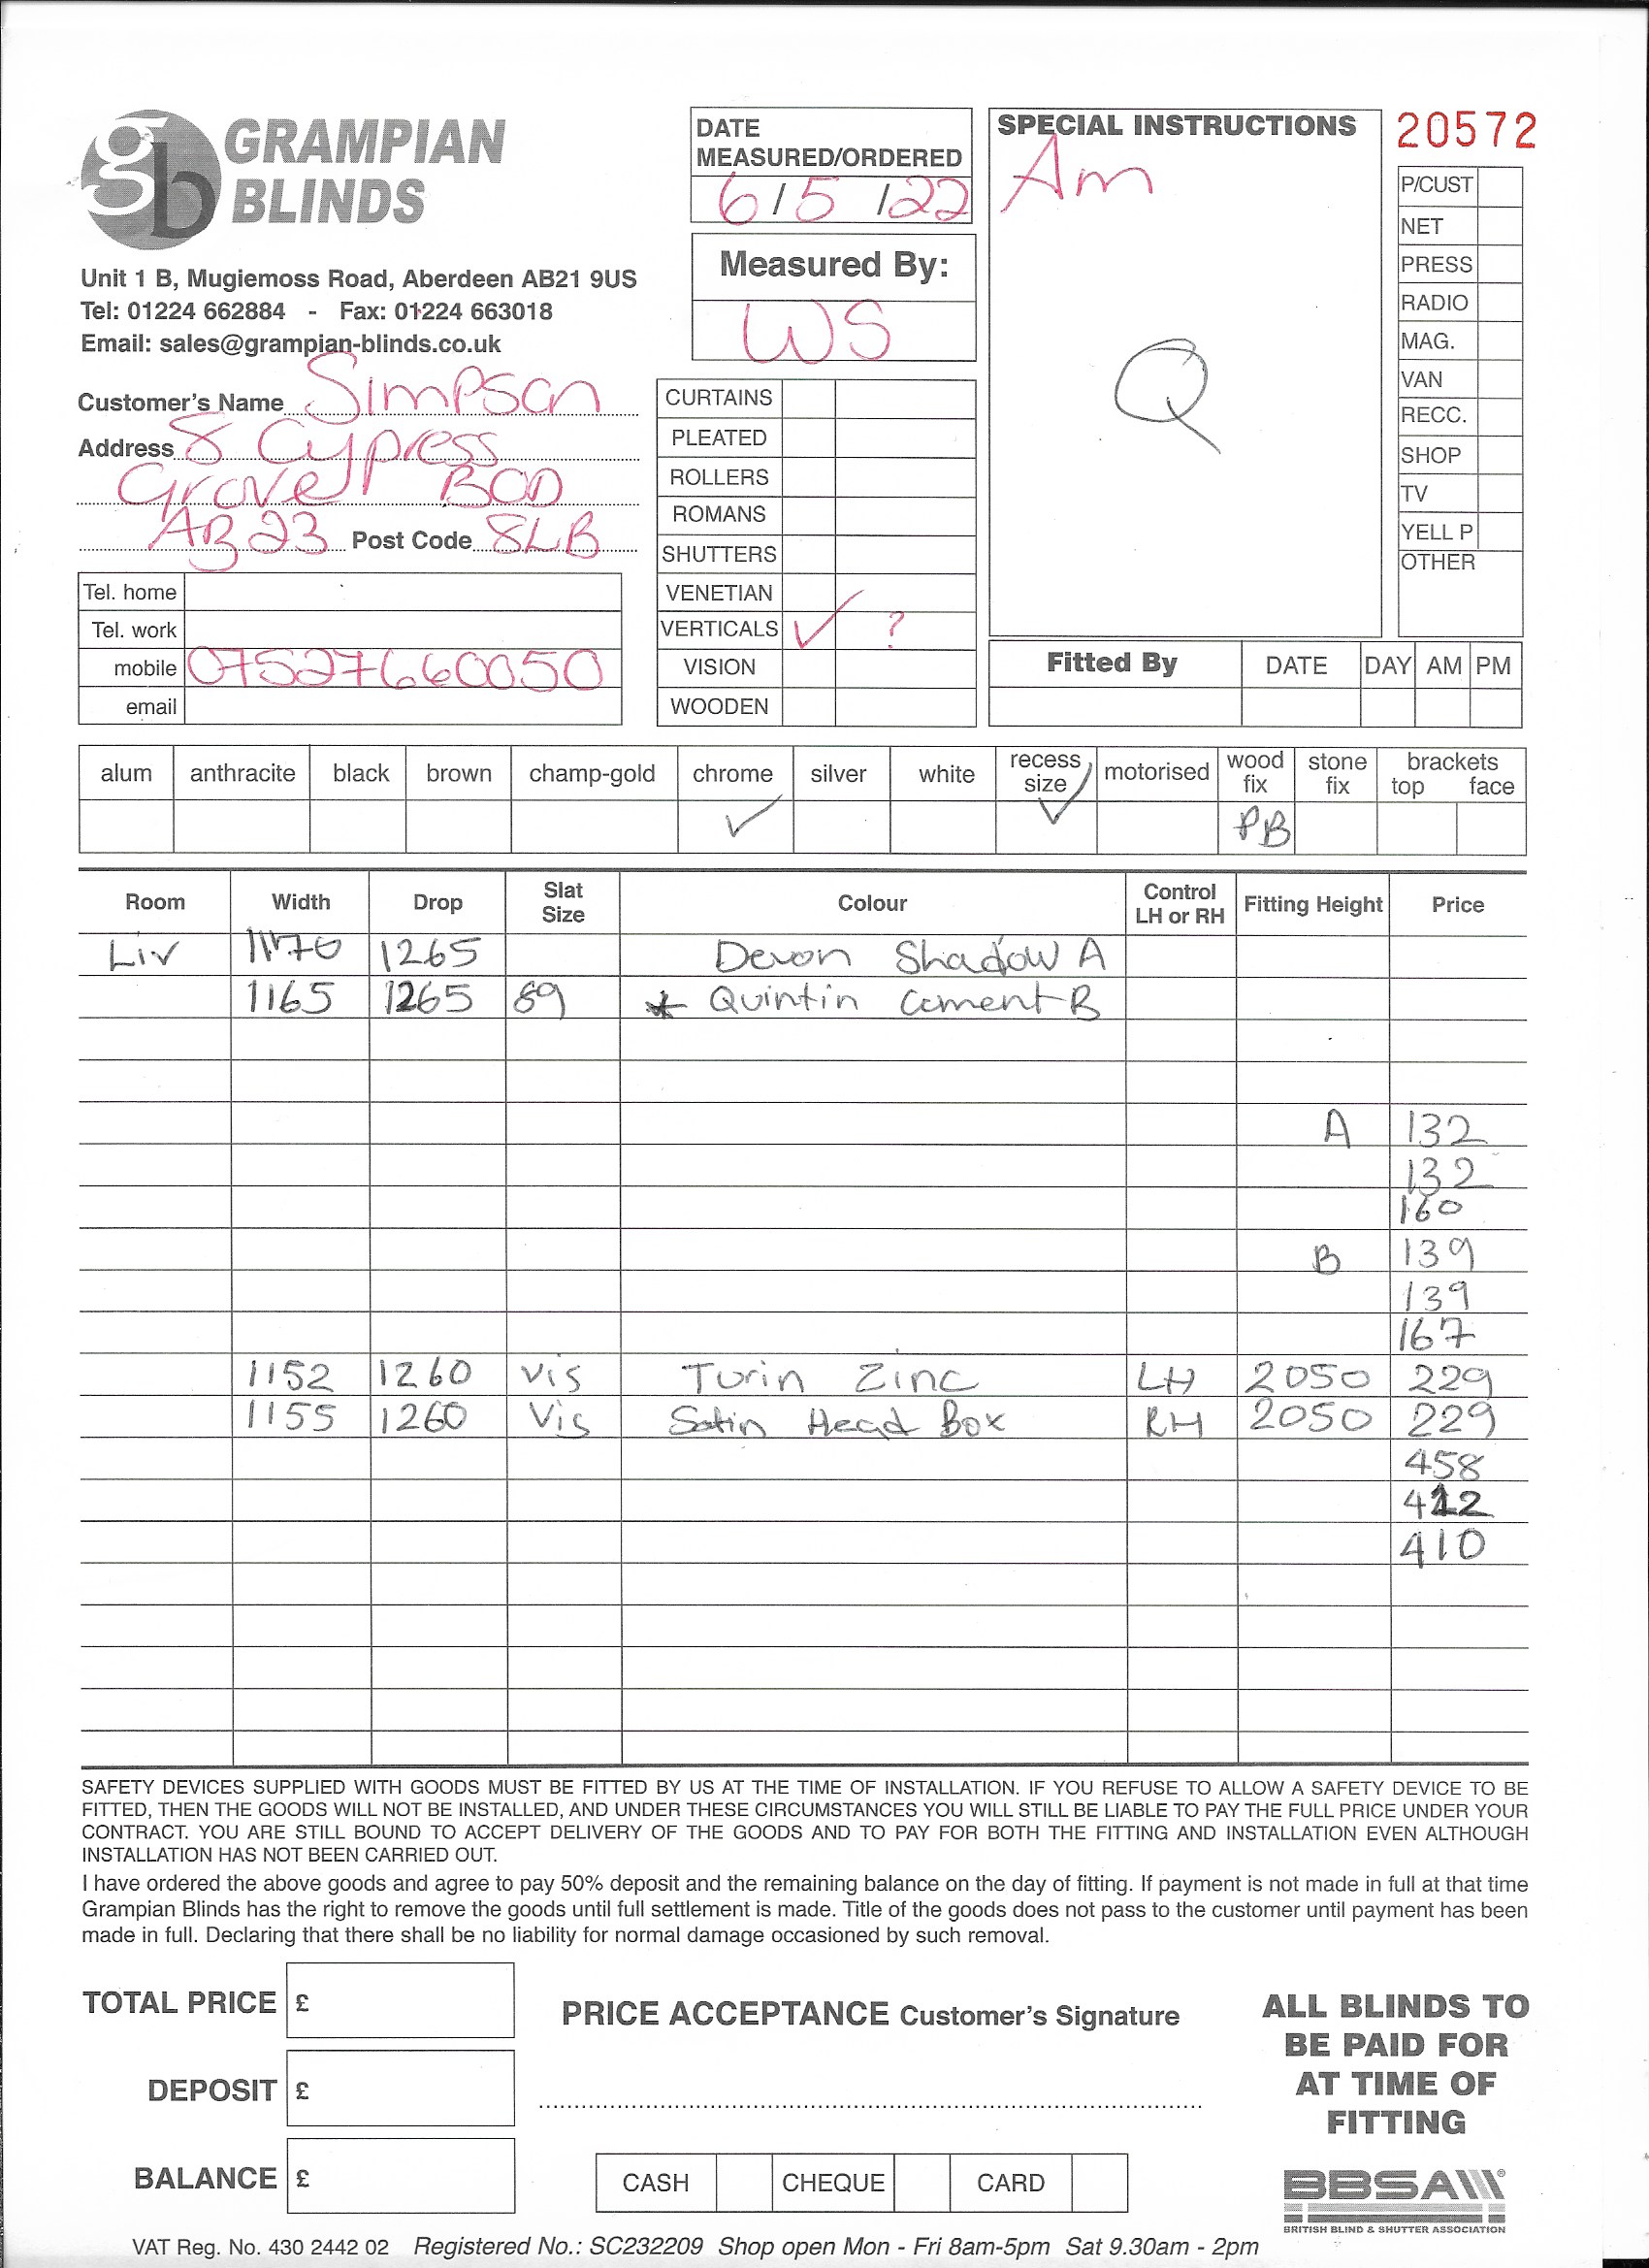 gb GRAMPIAN BLINDS
Unit 1 B, Mugiemoss Road, Aberdeen AB21 9US
Tel: 01224 662884 - Fax: 01224 663018
Email: sales@grampian-blinds.co.uk
Customer's Name Simpson
Address 8 Cypress
Grove BOD
AB23 Post Code 8LB
Tel. home
Tel. work
mobile 07527660050
email
DATE MEASURED/ORDERED
6/5/22
Measured By:
WS
CURTAINS
PLEATED
ROLLERS
ROMANS
SHUTTERS
VENETIAN
VERTICALS ✓ ?
VISION
WOODEN
SPECIAL INSTRUCTIONS
Am
Q
20572
P/CUST
NET
PRESS
RADIO
MAG.
VAN
RECC.
SHOP
TV
YELL P
OTHER
Fitted By DATE DAY AM PM
alum anthracite black brown champ-gold chrome silver white recess size motorised wood fix stone fix brackets top face
✓ ✓ PB
Room Width Drop Slat Size Colour Control LH or RH Fitting Height Price
Liv 1170 1265 Devon Shadow A
1165 1265 89 * Quintin Cement B
A 132
132
160
B 139
139
167
1152 1260 Vis Turin Zinc LH 2050 229
1155 1260 Vis Satin Head Box RH 2050 229
458
412
410
SAFETY DEVICES SUPPLIED WITH GOODS MUST BE FITTED BY US AT THE TIME OF INSTALLATION. IF YOU REFUSE TO ALLOW A SAFETY DEVICE TO BE
FITTED, THEN THE GOODS WILL NOT BE INSTALLED, AND UNDER THESE CIRCUMSTANCES YOU WILL STILL BE LIABLE TO PAY THE FULL PRICE UNDER YOUR
CONTRACT. YOU ARE STILL BOUND TO ACCEPT DELIVERY OF THE GOODS AND TO PAY FOR BOTH THE FITTING AND INSTALLATION EVEN ALTHOUGH
INSTALLATION HAS NOT BEEN CARRIED OUT.
I have ordered the above goods and agree to pay 50% deposit and the remaining balance on the day of fitting. If payment is not made in full at that time
Grampian Blinds has the right to remove the goods until full settlement is made. Title of the goods does not pass to the customer until payment has been
made in full. Declaring that there shall be no liability for normal damage occasioned by such removal.
TOTAL PRICE £
DEPOSIT £
BALANCE £
PRICE ACCEPTANCE Customer's Signature
CASH CHEQUE CARD
ALL BLINDS TO
BE PAID FOR
AT TIME OF
FITTING
BBSA
BRITISH BLIND & SHUTTER ASSOCIATION
VAT Reg. No. 430 2442 02 Registered No.: SC232209 Shop open Mon - Fri 8am-5pm Sat 9.30am - 2pm